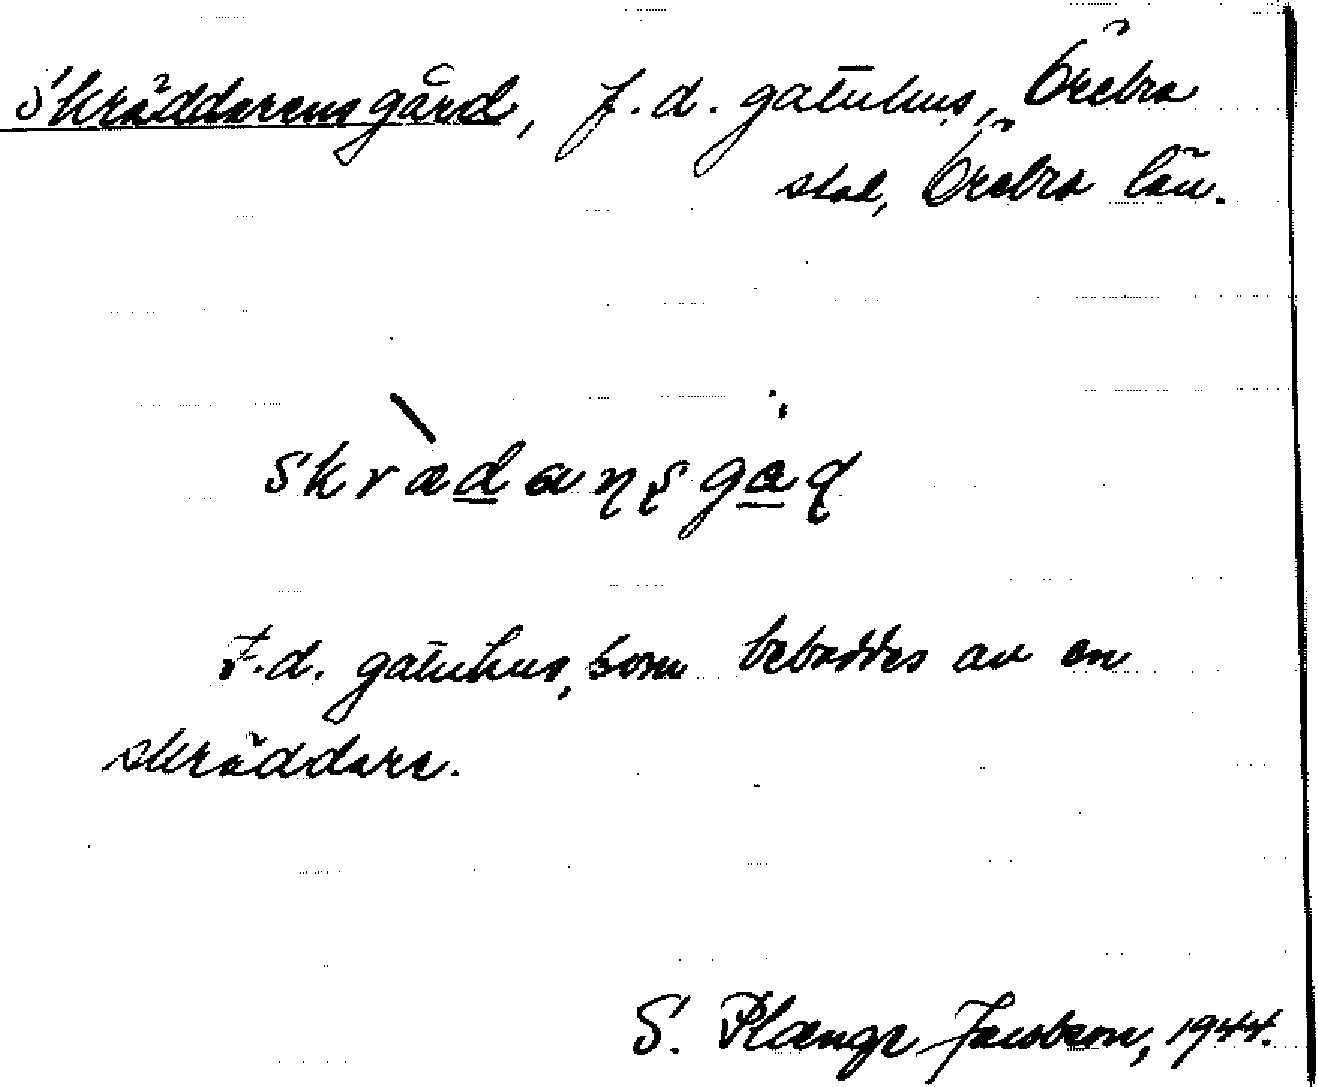 Skräddarensgård, f.d. gatuhus, Örebro
stad, Örebro län.
F.d. gatuhus, som beboddes av en
skräddare.
S. Plænge Jacobson, 1944.